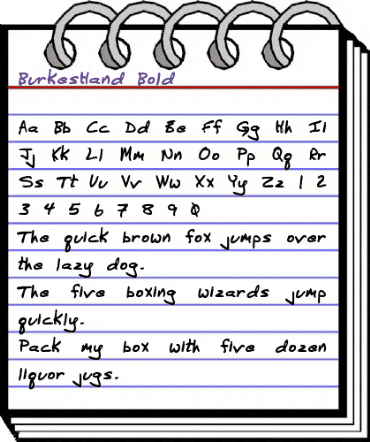 BurkesHand Bold
Aa Bb Cc Dd Ee Ff Gg Hh Ii
Jj Kk Ll Mm Nn Oo Pp Qq Rr
Ss Tt Uu Vv Ww Xx Yy Zz 1 2
3 4 5 6 7 8 9 0
The quick brown fox jumps over
the lazy dog.
The five boxing wizards jump
quickly.
Pack my box with five dozen
liquor jugs.